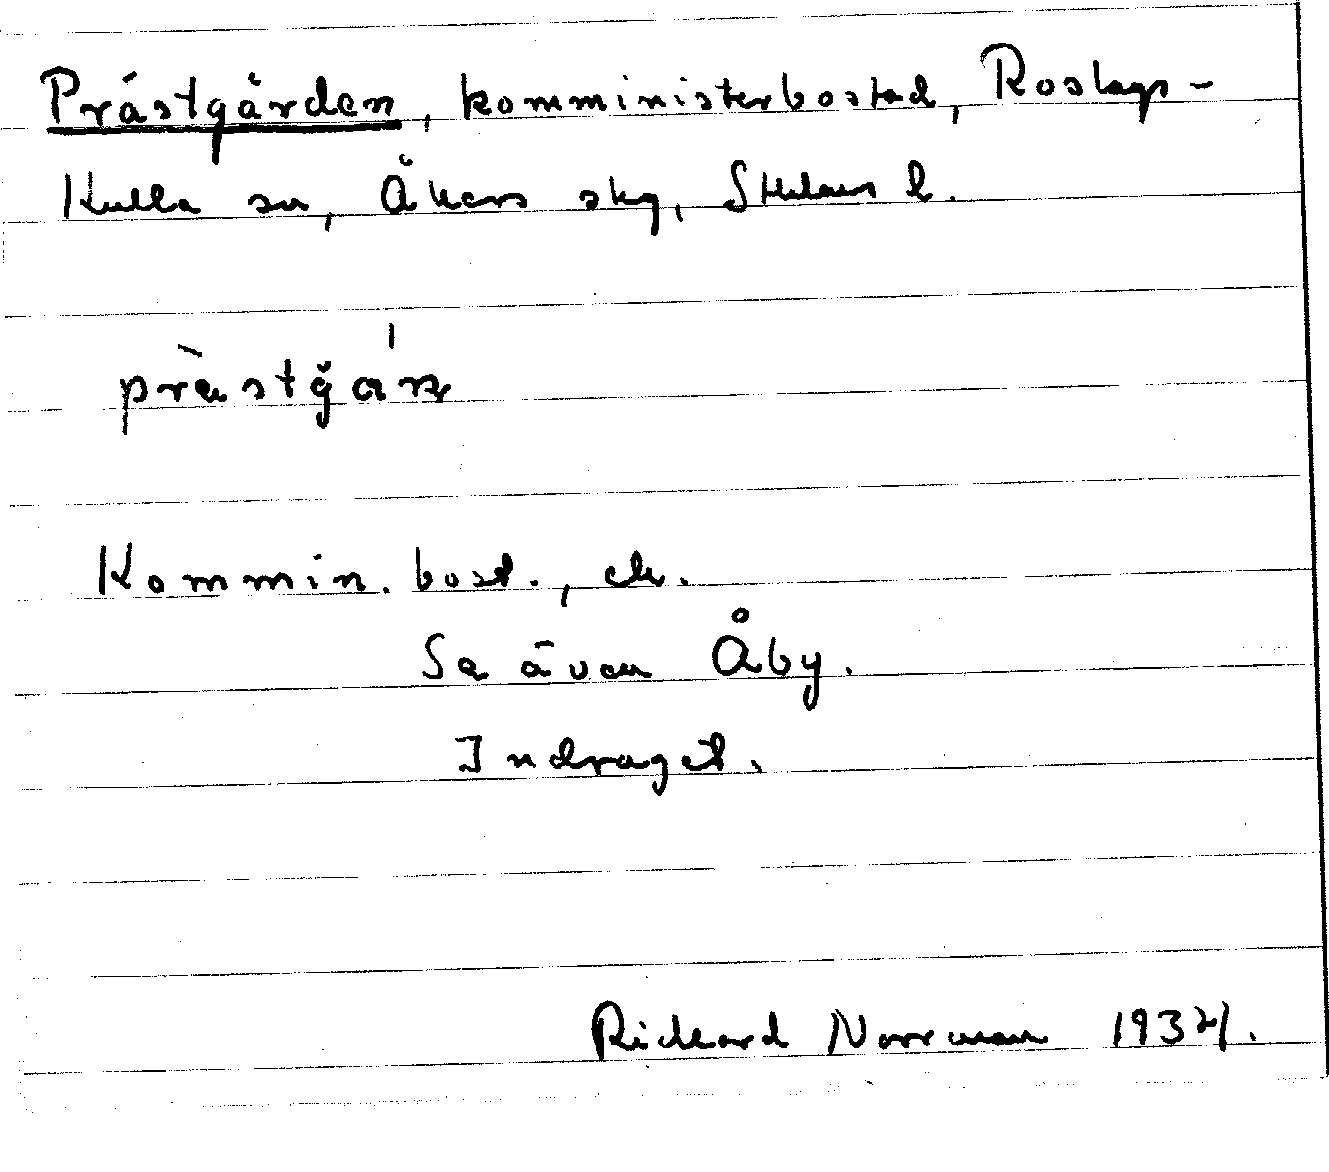 Prästgården, komministerbostad, Roslags-
Kulla sn, Åkers skg, Sthlms l.
prästgán
Kommin. bost., ek.
Se även Åby.
Indraget.
Richard Norrman 1934.